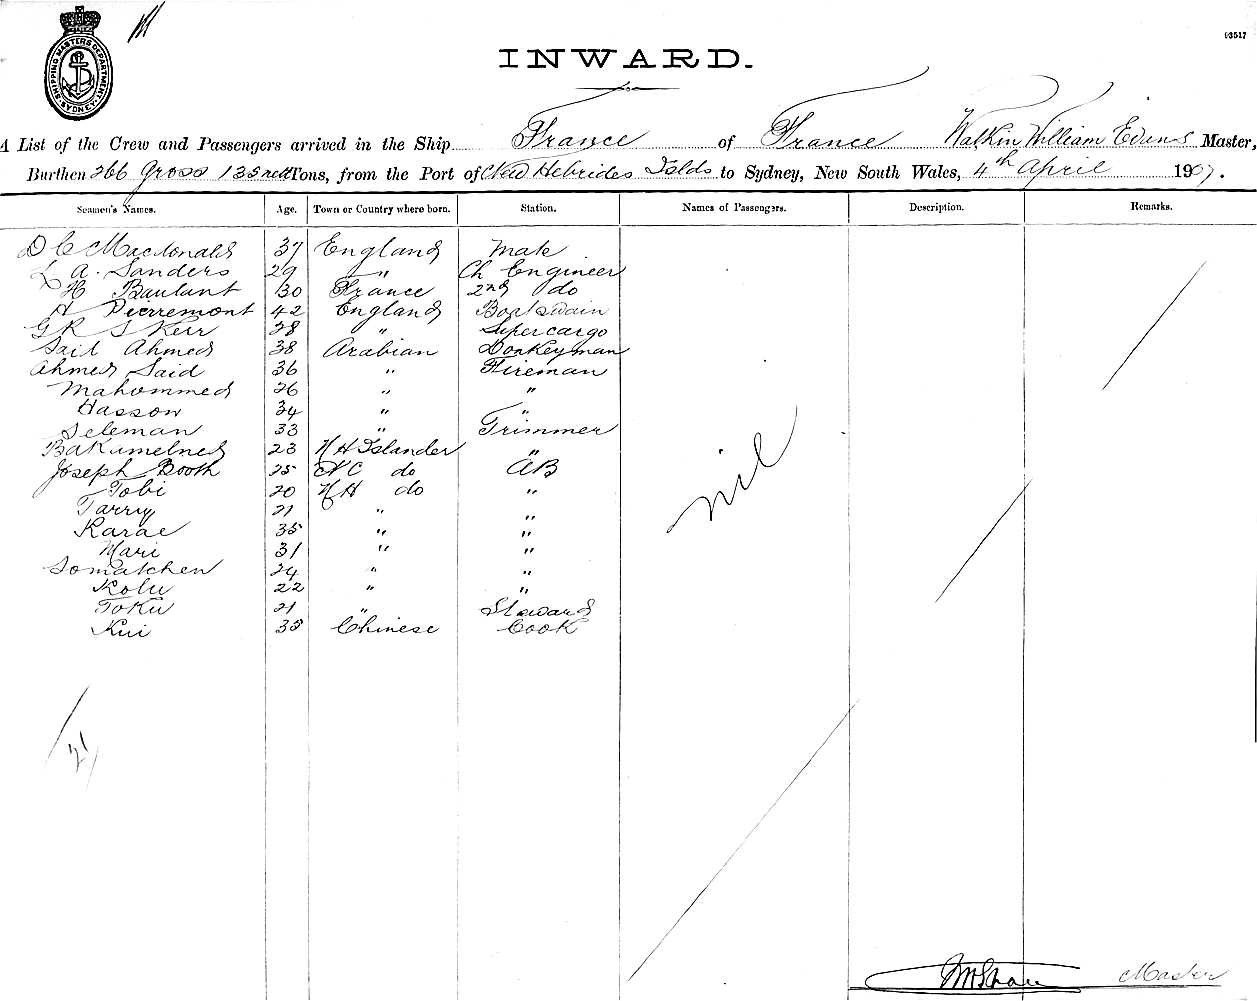 SHIPPING MASTER'S DEPARTMENT SYDNEY
03517
INWARD.
A List of the Crew and Passengers arrived in the Ship France of France Watkin William Evans Master,
Burthen 266 Gross 135 nett Tons, from the Port of New Hebrides Islds to Sydney, New South Wales, 4th April 1907.
Seamen's Names. Age. Town or Country where born. Station. Names of Passengers. Description. Remarks.
D C Macdonald 37 England Mate
L A. Sanders 29 " Ch Engineer
H Baulant 30 France 2nd do
A Pierremont 42 England Boatswain
G R S Keir 28 " Supercargo
Said Ahmed 38 Arabian Donkeyman
Ahmed Said 36 " Fireman
Mahommed 26 " "
Hasson 34 " "
Seleman 33 " Trimmer
Bakumelned 23 N H Islander "
Joseph Booth 25 N C do AB
Tobi 20 N H do "
Tarry 21 " "
Karae 35 " "
Mari 31 " "
Somatchen 24 " "
Kolu 22 " "
Toku 21 " Steward
Kui 35 Chinese Cook
nil
21
Master